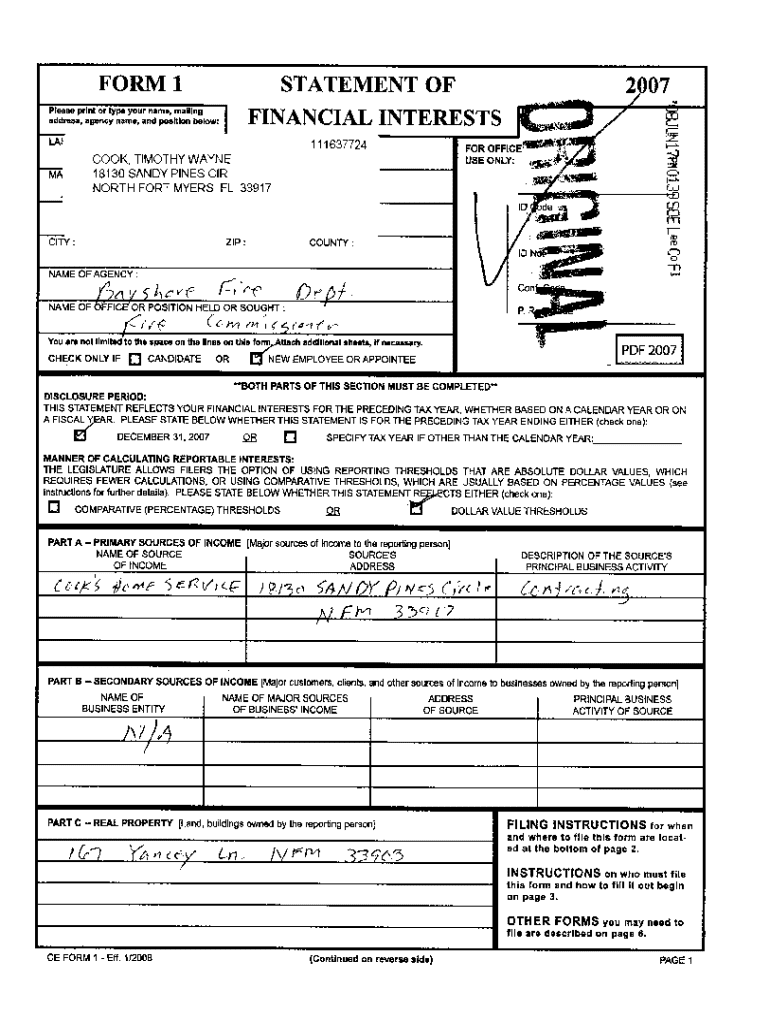 FORM 1
STATEMENT OF
FINANCIAL INTERESTS
2007
Please print or type your name, mailing
address, agency name, and position below:
111637724
COOK, TIMOTHY WAYNE
MA 18130 SANDY PINES CIR
NORTH FORT MYERS FL 33917
CITY : ZIP : COUNTY :
NAME OF AGENCY :
Bayshore Fire Dept.
NAME OF OFFICE OR POSITION HELD OR SOUGHT :
Fire Commissioner
You are not limited to the space on the lines on this form. Attach additional sheets, if necessary.
CHECK ONLY IF CANDIDATE OR NEW EMPLOYEE OR APPOINTEE
FOR OFFICE
USE ONLY:
ORIGINAL
ID Code
ID No.
Conf. Code
P. R.
PDF 2007
**BOTH PARTS OF THIS SECTION MUST BE COMPLETED**
DISCLOSURE PERIOD:
THIS STATEMENT REFLECTS YOUR FINANCIAL INTERESTS FOR THE PRECEDING TAX YEAR, WHETHER BASED ON A CALENDAR YEAR OR ON
A FISCAL YEAR. PLEASE STATE BELOW WHETHER THIS STATEMENT IS FOR THE PRECEDING TAX YEAR ENDING EITHER (check one):
DECEMBER 31, 2007 OR SPECIFY TAX YEAR IF OTHER THAN THE CALENDAR YEAR:
MANNER OF CALCULATING REPORTABLE INTERESTS:
THE LEGISLATURE ALLOWS FILERS THE OPTION OF USING REPORTING THRESHOLDS THAT ARE ABSOLUTE DOLLAR VALUES, WHICH
REQUIRES FEWER CALCULATIONS, OR USING COMPARATIVE THRESHOLDS, WHICH ARE USUALLY BASED ON PERCENTAGE VALUES (see
instructions for further details). PLEASE STATE BELOW WHETHER THIS STATEMENT REFLECTS EITHER (check one):
COMPARATIVE (PERCENTAGE) THRESHOLDS OR DOLLAR VALUE THRESHOLDS
PART A -- PRIMARY SOURCES OF INCOME [Major sources of income to the reporting person]
NAME OF SOURCE SOURCE'S DESCRIPTION OF THE SOURCE'S
OF INCOME ADDRESS PRINCIPAL BUSINESS ACTIVITY
COOK'S Home SERVICE 18130 SANDY PINES Circle Contracting
N.FM 33917
PART B -- SECONDARY SOURCES OF INCOME [Major customers, clients, and other sources of income to businesses owned by the reporting person]
NAME OF NAME OF MAJOR SOURCES ADDRESS PRINCIPAL BUSINESS
BUSINESS ENTITY OF BUSINESS' INCOME OF SOURCE ACTIVITY OF SOURCE
N/A
PART C -- REAL PROPERTY [Land, buildings owned by the reporting person]
167 Yancey Ln. NFM 33903
FILING INSTRUCTIONS for when
and where to file this form are locat-
ed at the bottom of page 2.
INSTRUCTIONS on who must file
this form and how to fill it out begin
on page 3.
OTHER FORMS you may need to
file are described on page 6.
CE FORM 1 - Eff. 1/2008 (Continued on reverse side) PAGE 1